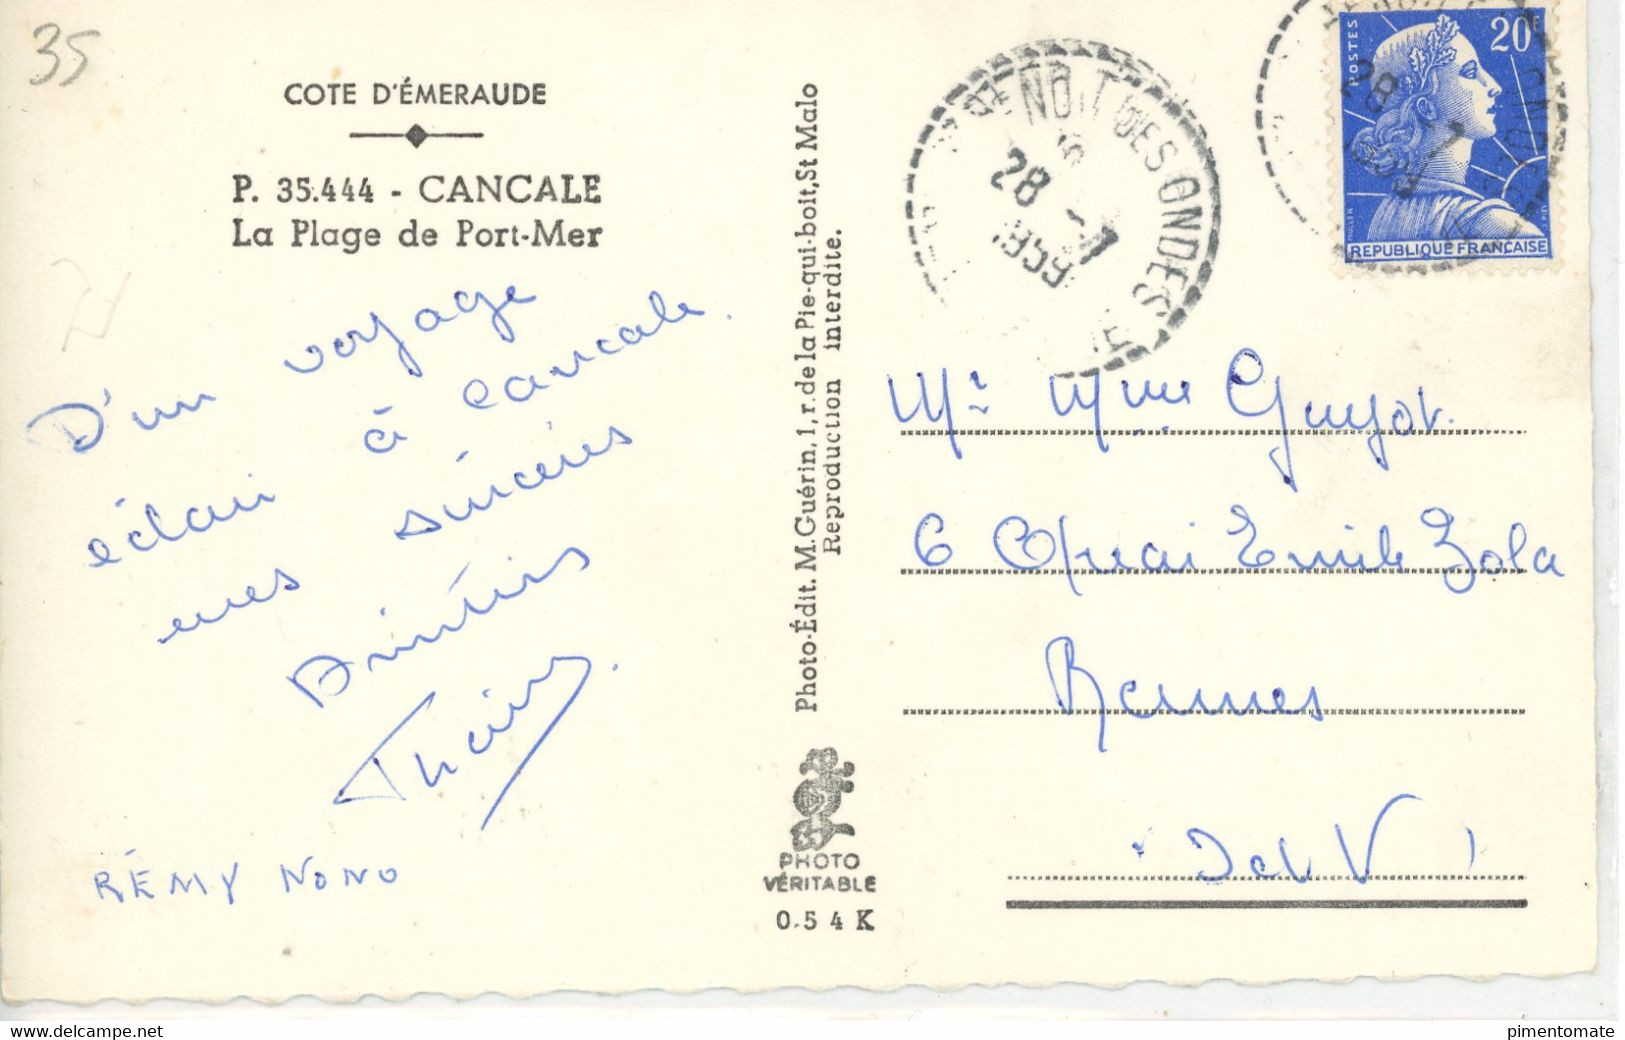 35
COTE D'ÉMERAUDE
P. 35.444 - CANCALE
La Plage de Port-Mer
D'un voyage
éclair à Cancale.
mes sincères
Amitiés
RÉMY NONO
Photo-Édit. M. Guérin, 1, r. de la Pie-qui-boit, St Malo
Reproduction interdite.
PHOTO
VÉRITABLE
0.54 K
BENOIT DES ONDES
28 -7
1959
POSTES
20F
28 -7
1959
MULLER
PIEL
REPUBLIQUE FRANCAISE
Mr Mme Guyot.
6 Quai Emile Zola
Rennes
I et V
delcampe.net
pimentomate